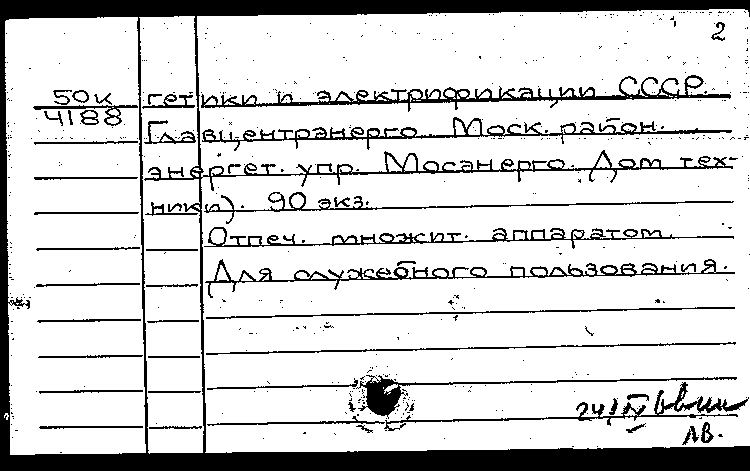 2
50к гетики и электрификации СССР.
4188
Главцентрэнерго. Моск. район.
энергет. упр. Мосэнерго. Дом тех-
ники). 90 экз.
Отпеч. множит. аппаратом.
Для служебного пользования.
24/IV
ЛВ.